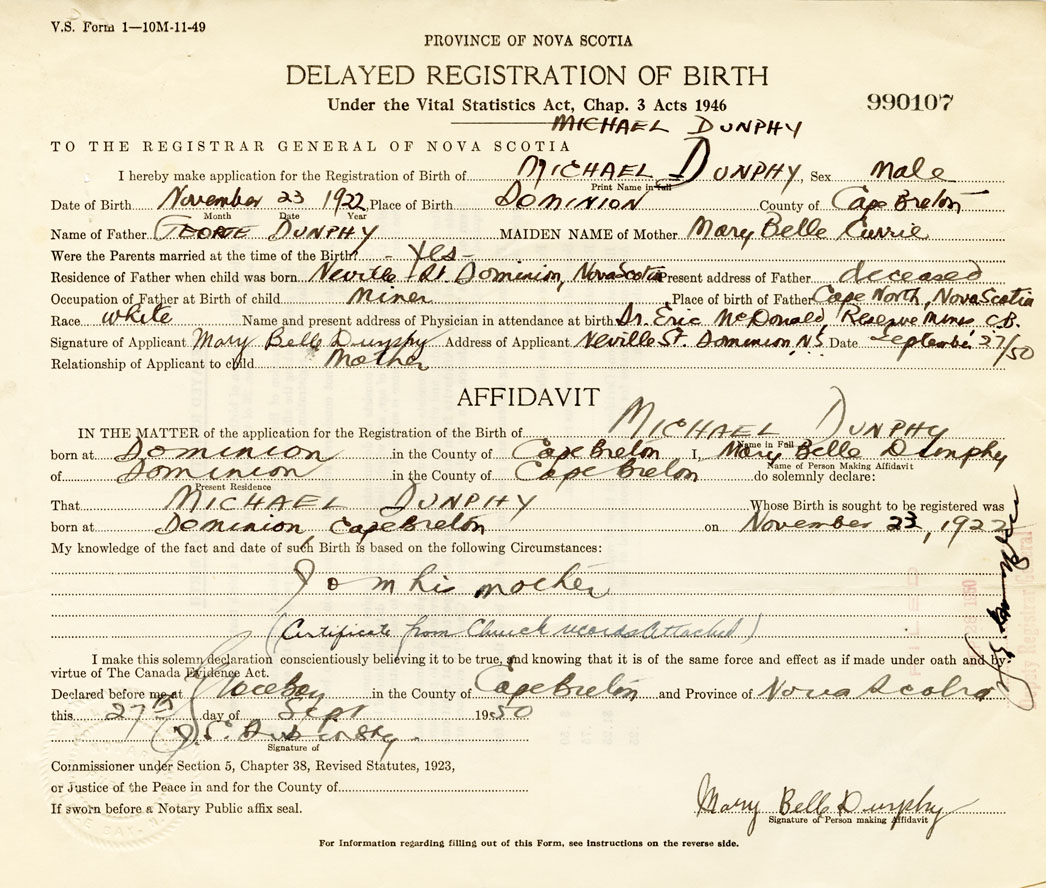 V.S. Form 1—10M-11-49
PROVINCE OF NOVA SCOTIA
DELAYED REGISTRATION OF BIRTH
Under the Vital Statistics Act, Chap. 3 Acts 1946
990107
MICHAEL DUNPHY
TO THE REGISTRAR GENERAL OF NOVA SCOTIA
I hereby make application for the Registration of Birth of MICHAEL DUNPHY, Sex male
Print Name in Full
Date of Birth November 23 1922 Place of Birth DOMINION County of Cape Breton
Month Date Year
Name of Father GEORGE DUNPHY MAIDEN NAME of Mother Mary Belle Currie
Were the Parents married at the time of the Birth? - Yes -
Residence of Father when child was born Neville St. Dominion, Nova Scotia Present address of Father deceased
Occupation of Father at Birth of child Miner Place of birth of Father Cape North, Nova Scotia
Race white Name and present address of Physician in attendance at birth Dr. Eric McDonald, Reserve Mines C.B.
Signature of Applicant Mary Belle Dunphy Address of Applicant Neville St. Dominion N.S. Date September 27/50
Relationship of Applicant to child Mother
AFFIDAVIT
IN THE MATTER of the application for the Registration of the Birth of MICHAEL DUNPHY
Name in Full
born at Dominion in the County of Cape Breton I, Mary Belle Dunphy
Name of Person Making Affidavit
of Dominion in the County of Cape Breton do solemnly declare:
Present Residence
That MICHAEL DUNPHY Whose Birth is sought to be registered was
born at Dominion, Cape Breton on November 23, 1922
My knowledge of the fact and date of such Birth is based on the following Circumstances:
I am his mother
(Certificate from Church records attached)
I make this solemn declaration conscientiously believing it to be true, and knowing that it is of the same force and effect as if made under oath and by
virtue of The Canada Evidence Act.
Declared before me at Glace Bay in the County of Cape Breton and Province of Nova Scotia
this 27th day of Sept 1950
Signature of
Commissioner under Section 5, Chapter 38, Revised Statutes, 1923,
or Justice of the Peace in and for the County of
If sworn before a Notary Public affix seal.
Mary Belle Dunphy
Signature of Person making Affidavit
For Information regarding filling out of this Form, see instructions on the reverse side.